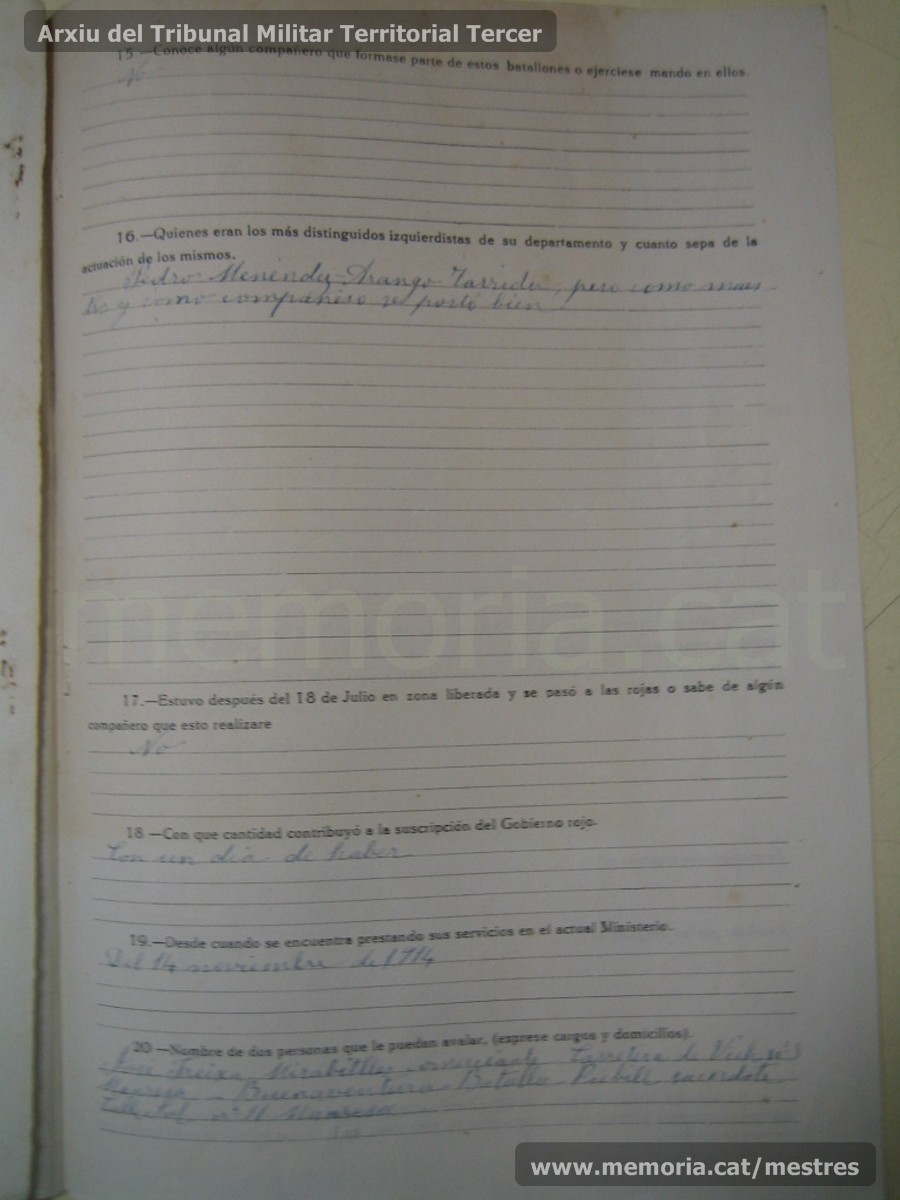 Arxiu del Tribunal Militar Territorial Tercer
15.—Conoce algún compañero que formase parte de estos batallones o ejerciese mando en ellos.
No
16.—Quienes eran los más distinguidos izquierdistas de su departamento y cuanto sepa de la
actuación de los mismos.
Pedro Menéndez-Arango Tarrida, pero como maes-
tro y como compañero se portó bien
memoria.cat
17.—Estuvo después del 18 de Julio en zona liberada y se pasó a las rojas o sabe de algún
compañero que esto realizare
No
18 —Con que cantidad contribuyó a la suscripción del Gobierno rojo.
Con un día de haber
19.—Desde cuando se encuentra prestando sus servicios en el actual Ministerio.
Del 14 noviembre de 1914
20—Nombre de dos personas que le puedan avalar, (esprese cargos y domicilios).
José comerciante Carretera de Vich nº
Manresa Buenaventura Batalla sacerdote
nº 11 Manresa
www.memoria.cat/mestres